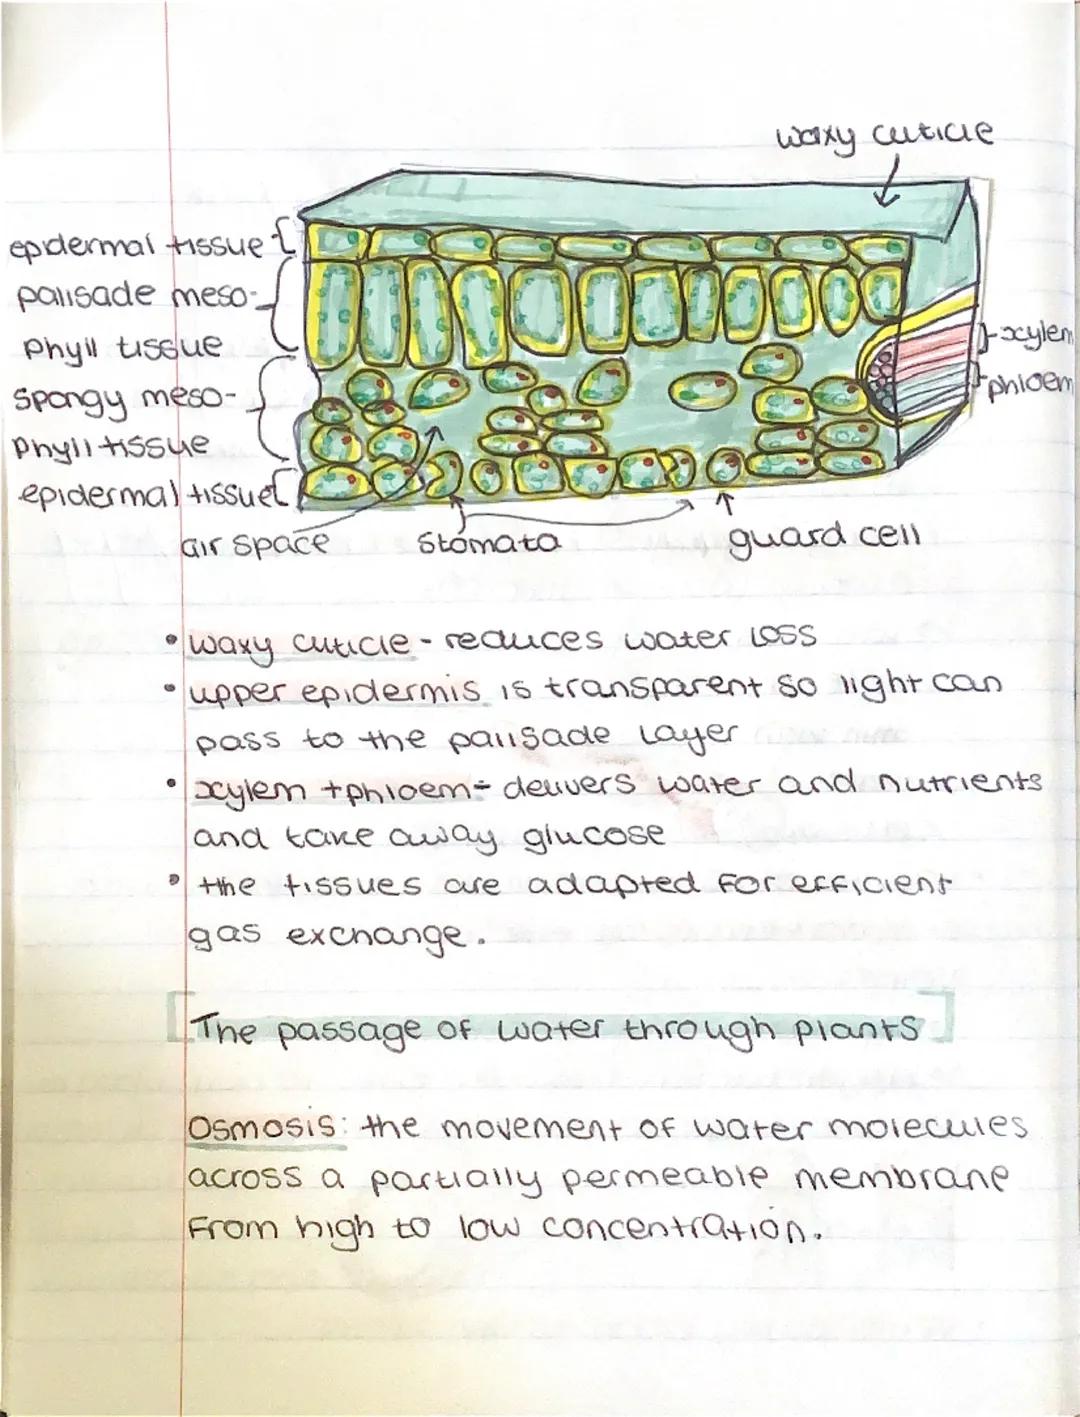 waxy cuticle
epidermal tissue
palisade meso-
phyll tissue
spongy meso-
phyll tissue
epidermal tissue
xylem
phloem
air space
stomata
guard cell
• waxy cuticle - reduces water loss
• upper epidermis is transparent so light can
pass to the palisade layer
• xylem + phloem - delivers water and nutrients
and take away glucose
• the tissues are adapted for efficient
gas exchange.
[The passage of water through plants]
Osmosis: the movement of water molecules
across a partially permeable membrane
from high to low concentration.